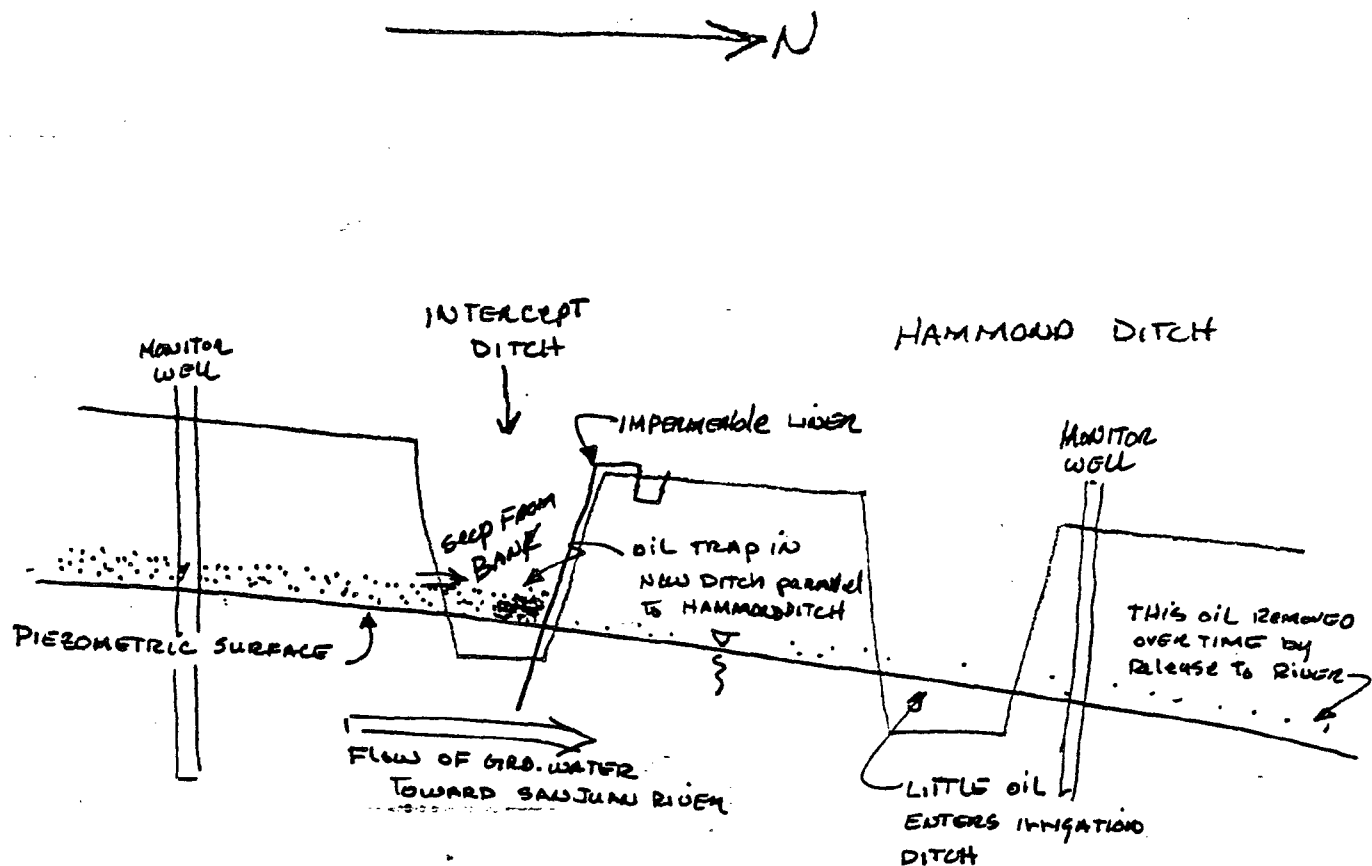 N
INTERCEPT
DITCH
HAMMOND DITCH
MONITOR
WELL
IMPERMEABLE LINER
MONITOR
WELL
SEEP FROM
BANK
OIL TRAP IN
NEW DITCH parallel
To HAMMOND DITCH
THIS OIL REMOVED
OVER TIME by
Release To RIVER
PIEZOMETRIC SURFACE
FLOW OF GRD. WATER
TOWARD SAN JUAN RIVER
LITTLE OIL
ENTERS IRRIGATION
DITCH